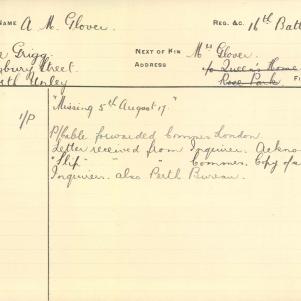 NAME A. M. Glover. REG. &C. 16th Batt
Grigg NEXT OF KIN Mrs Glover.
bury Street ADDRESS c/o Queen's Home
th Unley Rose Park. FI
"Missing 5th August 17."
I/P P/Cable forwarded Commrs London.
Letter received from Inquirer. Ackno
"Slip" " " Commrs. Copy of
Inquiries. also Perth Bureau.